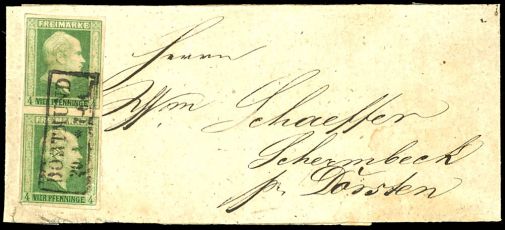 FREIMARKE
4 VIER PFENNINGE
FREIMARKE
4 VIER PFENNINGE 4
DORTMUND
20
Herrn
Wm Schaeffer
Schermbeck
pr. Dorsten